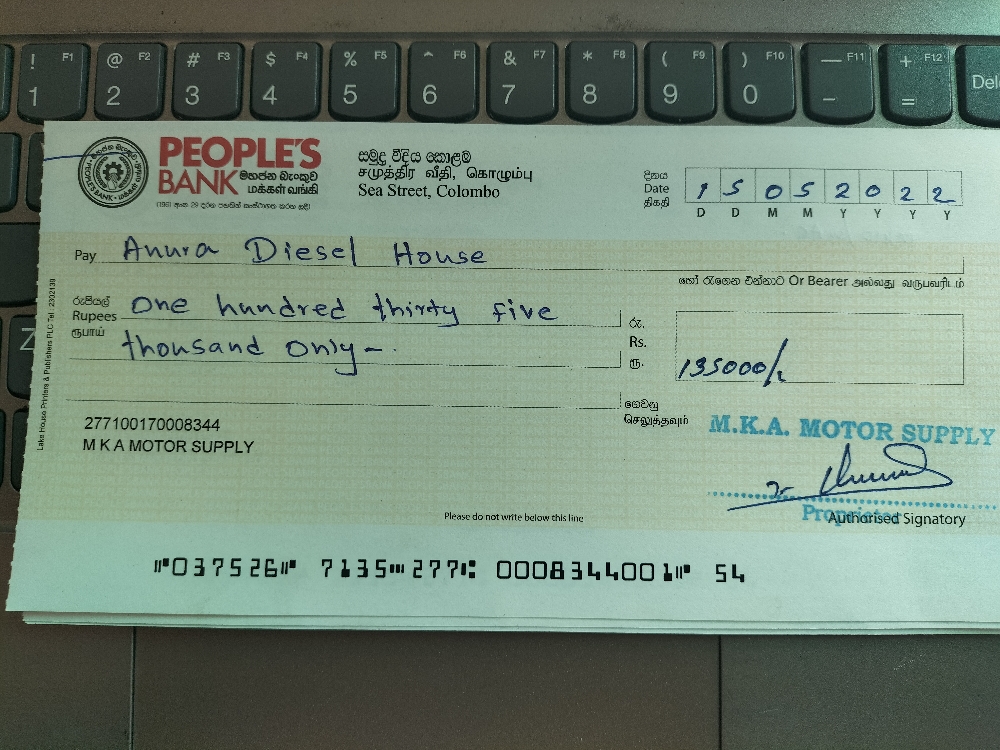 ! F1 @ F2 # F3 $ F4 % F5 ^ F6 & F7 * F8 ( F9 ) F10 — F11 + F12 Del
1 2 3 4 5 6 7 8 9 0 - =
Z
PEOPLE'S
BANK මහජන බැංකුව
மக்கள் வங்கி
සමුද්‍ර වීදිය කොළඹ
சமுத்திர வீதி, கொழும்பு
Sea Street, Colombo
දිනය
Date 1 5 0 5 2 0 2 2
திகதி D D M M Y Y Y Y
Pay Anura Diesel House
හෝ රැගෙන එන්නාට Or Bearer அல்லது வருபவரிடம்
රුපියල්
Rupees One hundred thirty five
ரூபாய் thousand only –
රු.
Rs. 135000/-
ரூ.
ගෙවනු
செலுத்தவும்
277100170008344
M K A MOTOR SUPPLY
M.K.A. MOTOR SUPPLY
Proprietor
Authorised Signatory
Please do not write below this line
⑈037526⑈ 7135⑉277⑆ 0008344001⑈ 54
Lake House Printers & Publishers PLC Tel : 2302139